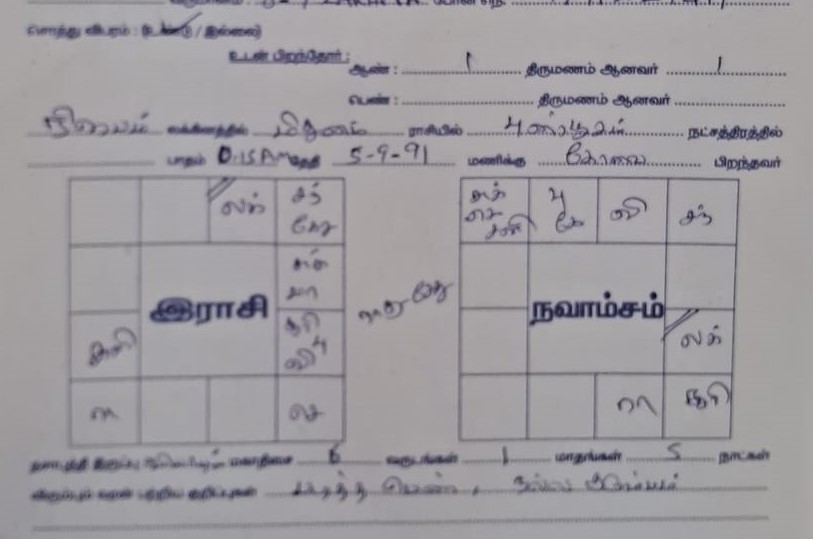 சொத்து விபரம் : (உண்டு / இல்லை)
உடன் பிறந்தோர் :
ஆண் : 1 திருமணம் ஆனவர் 1
பெண் : திருமணம் ஆனவர்
ரிஷபம் லக்கினத்தில் மிதுனம் ராசியில் புனர்பூசம் நட்சத்திரத்தில்
பாதம் 0.15 AM தேதி 5-9-91 மணிக்கு கோவை பிறந்தவர்
லக் சந் கேது
சுக்
இராசி
சனி சூரி பு
ரா செ
சுக் செ சனி பு கே வி சந்
நவாம்சம்
லக்
ரா சூரி
இருப்பு மகாதிசை 6 வருடங்கள் 1 மாதங்கள் 5 நாட்கள்
பற்றிய குறிப்புகள் படித்த பெண், நல்ல குடும்பம்